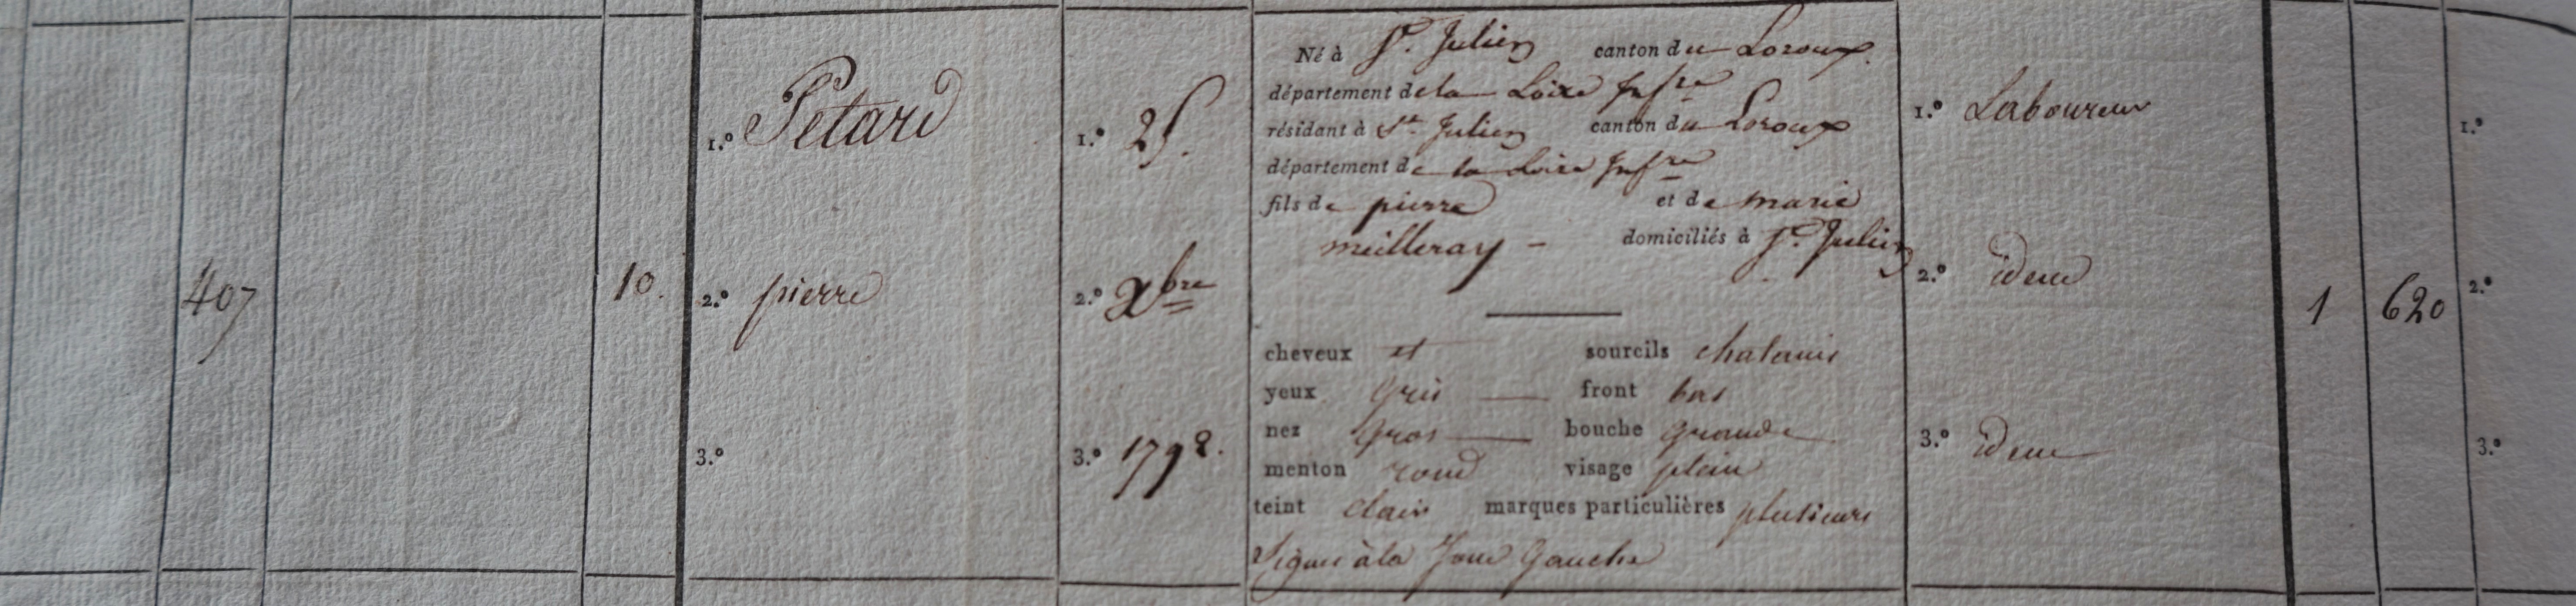 407
10.
1.º Petard
2.º pierre
3.º
1.º 25.
2.º Xbre
3.º 1792.
Né à St. Julien canton du Loroux.
département de la Loire Infre
résidant à St. Julien canton du Loroux
département de la Loire Infre
fils de pierre et de marie
meilleray - domiciliés à St. Julien
cheveux et sourcils chatains
yeux Gris front bas
nez Gros bouche grande
menton rond visage plein
teint clair marques particulières plusieurs
Signes à la Joue Gauche
1.º Laboureur
2.º idem
3.º idem
1
620
1.º
2.º
3.º